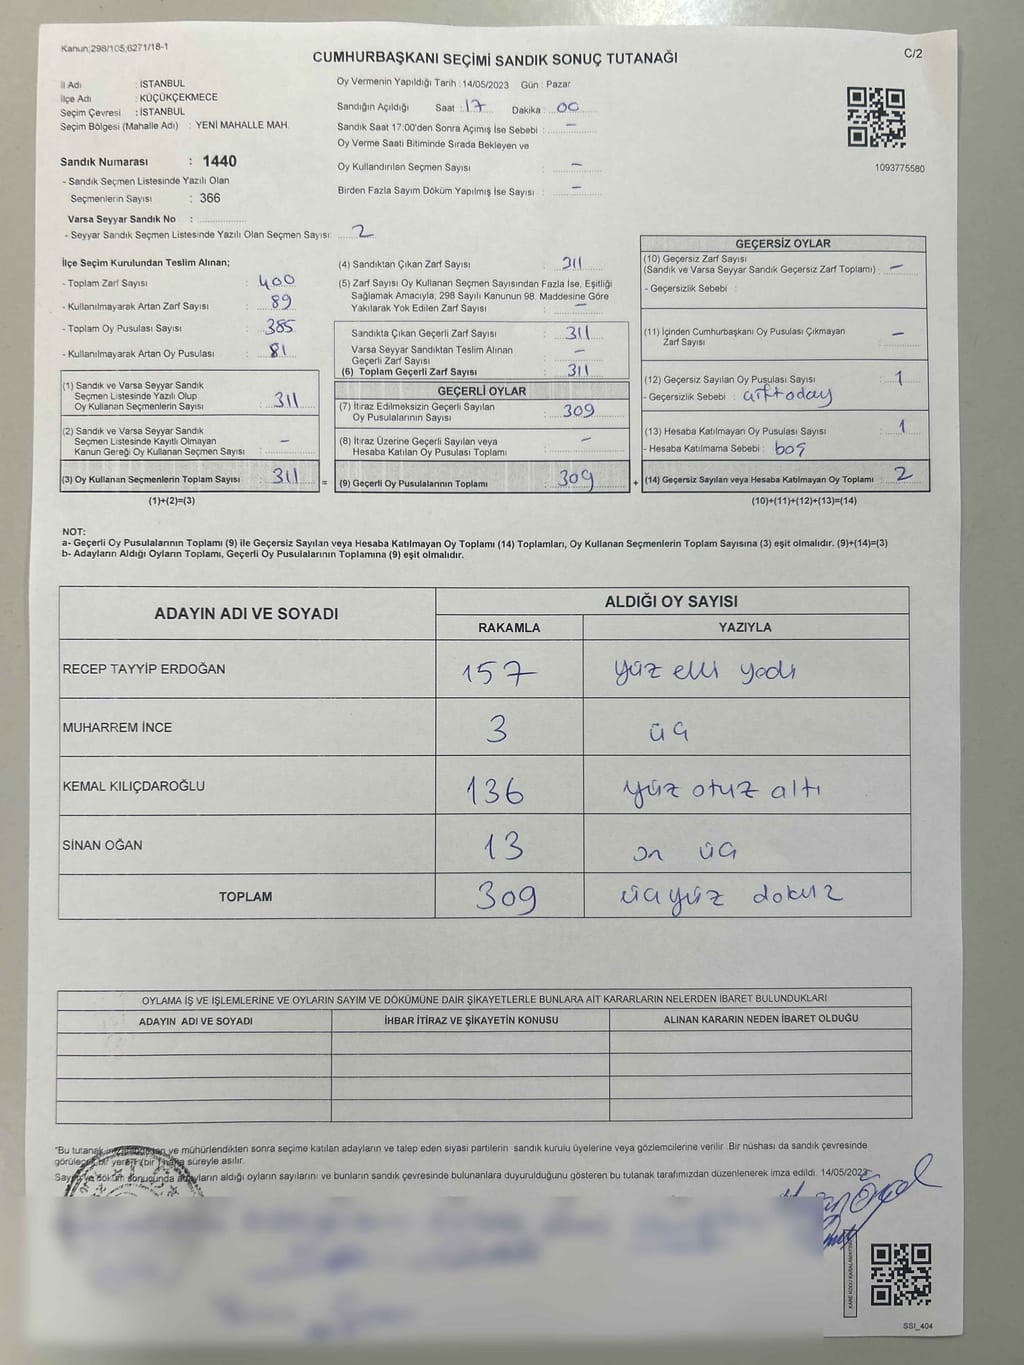 Kanun;298/105;6271/18-1
CUMHURBAŞKANI SEÇİMİ SANDIK SONUÇ TUTANAĞI
C/2
İl Adı : İSTANBUL
İlçe Adı : KÜÇÜKÇEKMECE
Seçim Çevresi : İSTANBUL
Seçim Bölgesi (Mahalle Adı) : YENİ MAHALLE MAH.
Sandık Numarası : 1440
- Sandık Seçmen Listesinde Yazılı Olan
Seçmenlerin Sayısı : 366
Varsa Seyyar Sandık No :
- Seyyar Sandık Seçmen Listesinde Yazılı Olan Seçmen Sayısı: 2
Oy Vermenin Yapıldığı Tarih : 14/05/2023 Gün : Pazar
Sandığın Açıldığı Saat : 17 Dakika : 00
Sandık Saat 17:00'den Sonra Açımış İse Sebebi : –
Oy Verme Saati Bitiminde Sırada Bekleyen ve
Oy Kullandırılan Seçmen Sayısı : –
Birden Fazla Sayım Döküm Yapılmış İse Sayısı : –
1093775580
İlçe Seçim Kurulundan Teslim Alınan;
- Toplam Zarf Sayısı : 400
- Kullanılmayarak Artan Zarf Sayısı : 89
- Toplam Oy Pusulası Sayısı : 385
- Kullanılmayarak Artan Oy Pusulası : 81
(1) Sandık ve Varsa Seyyar Sandık
Seçmen Listesinde Yazılı Olup
Oy Kullanan Seçmenlerin Sayısı : 311
(2) Sandık ve Varsa Seyyar Sandık
Seçmen Listesinde Kayıtlı Olmayan
Kanun Gereği Oy Kullanan Seçmen Sayısı : –
(3) Oy Kullanan Seçmenlerin Toplam Sayısı : 311
(1)+(2)=(3)
(4) Sandıktan Çıkan Zarf Sayısı : 311
(5) Zarf Sayısı Oy Kullanan Seçmen Sayısından Fazla İse, Eşitliği
Sağlamak Amacıyla, 298 Sayılı Kanunun 98. Maddesine Göre
Yakılarak Yok Edilen Zarf Sayısı : –
Sandıkta Çıkan Geçerli Zarf Sayısı : 311
Varsa Seyyar Sandıktan Teslim Alınan
Geçerli Zarf Sayısı : –
(6) Toplam Geçerli Zarf Sayısı : 311
GEÇERLİ OYLAR
(7) İtiraz Edilmeksizin Geçerli Sayılan
Oy Pusulalarının Sayısı : 309
(8) İtiraz Üzerine Geçerli Sayılan veya
Hesaba Katılan Oy Pusulası Toplamı : –
= (9) Geçerli Oy Pusulalarının Toplamı : 309
GEÇERSİZ OYLAR
(10) Geçersiz Zarf Sayısı
(Sandık ve Varsa Seyyar Sandık Geçersiz Zarf Toplamı) : –
- Geçersizlik Sebebi :
(11) İçinden Cumhurbaşkanı Oy Pusulası Çıkmayan
Zarf Sayısı : –
(12) Geçersiz Sayılan Oy Pusulası Sayısı : 1
- Geçersizlik Sebebi :
(13) Hesaba Katılmayan Oy Pusulası Sayısı : 1
- Hesaba Katılmama Sebebi : boş
+ (14) Geçersiz Sayılan veya Hesaba Katılmayan Oy Toplamı : 2
(10)+(11)+(12)+(13)=(14)
NOT:
a- Geçerli Oy Pusulalarının Toplamı (9) ile Geçersiz Sayılan veya Hesaba Katılmayan Oy Toplamı (14) Toplamları, Oy Kullanan Seçmenlerin Toplam Sayısına (3) eşit olmalıdır. (9)+(14)=(3)
b- Adayların Aldığı Oyların Toplamı, Geçerli Oy Pusulalarının Toplamına (9) eşit olmalıdır.
ADAYIN ADI VE SOYADI ALDIĞI OY SAYISI
RAKAMLA YAZIYLA
RECEP TAYYİP ERDOĞAN 157 yüz elli yedi
MUHARREM İNCE 3 üç
KEMAL KILIÇDAROĞLU 136 yüz otuz altı
SİNAN OĞAN 13 on üç
TOPLAM 309 üçyüz dokuz
OYLAMA İŞ VE İŞLEMLERİNE VE OYLARIN SAYIM VE DÖKÜMÜNE DAİR ŞİKAYETLERLE BUNLARA AİT KARARLARIN NELERDEN İBARET BULUNDUKLARI
ADAYIN ADI VE SOYADI İHBAR İTİRAZ VE ŞİKAYETİN KONUSU ALINAN KARARIN NEDEN İBARET OLDUĞU
"Bu tutanak ve mühürlendikten sonra seçime katılan adayların ve talep eden siyasi partilerin sandık kurulu üyelerine veya gözlemcilerine verilir. Bir nüshası da sandık çevresinde
görülecek bir yere (bir) hafta süreyle asılır.
Sayım ve döküm sonucunda adayların aldığı oyların sayılarını ve bunların sandık çevresinde bulunanlara duyurulduğunu gösteren bu tutanak tarafımızdan düzenlenerek imza edildi. 14/05/2023
SSI_404